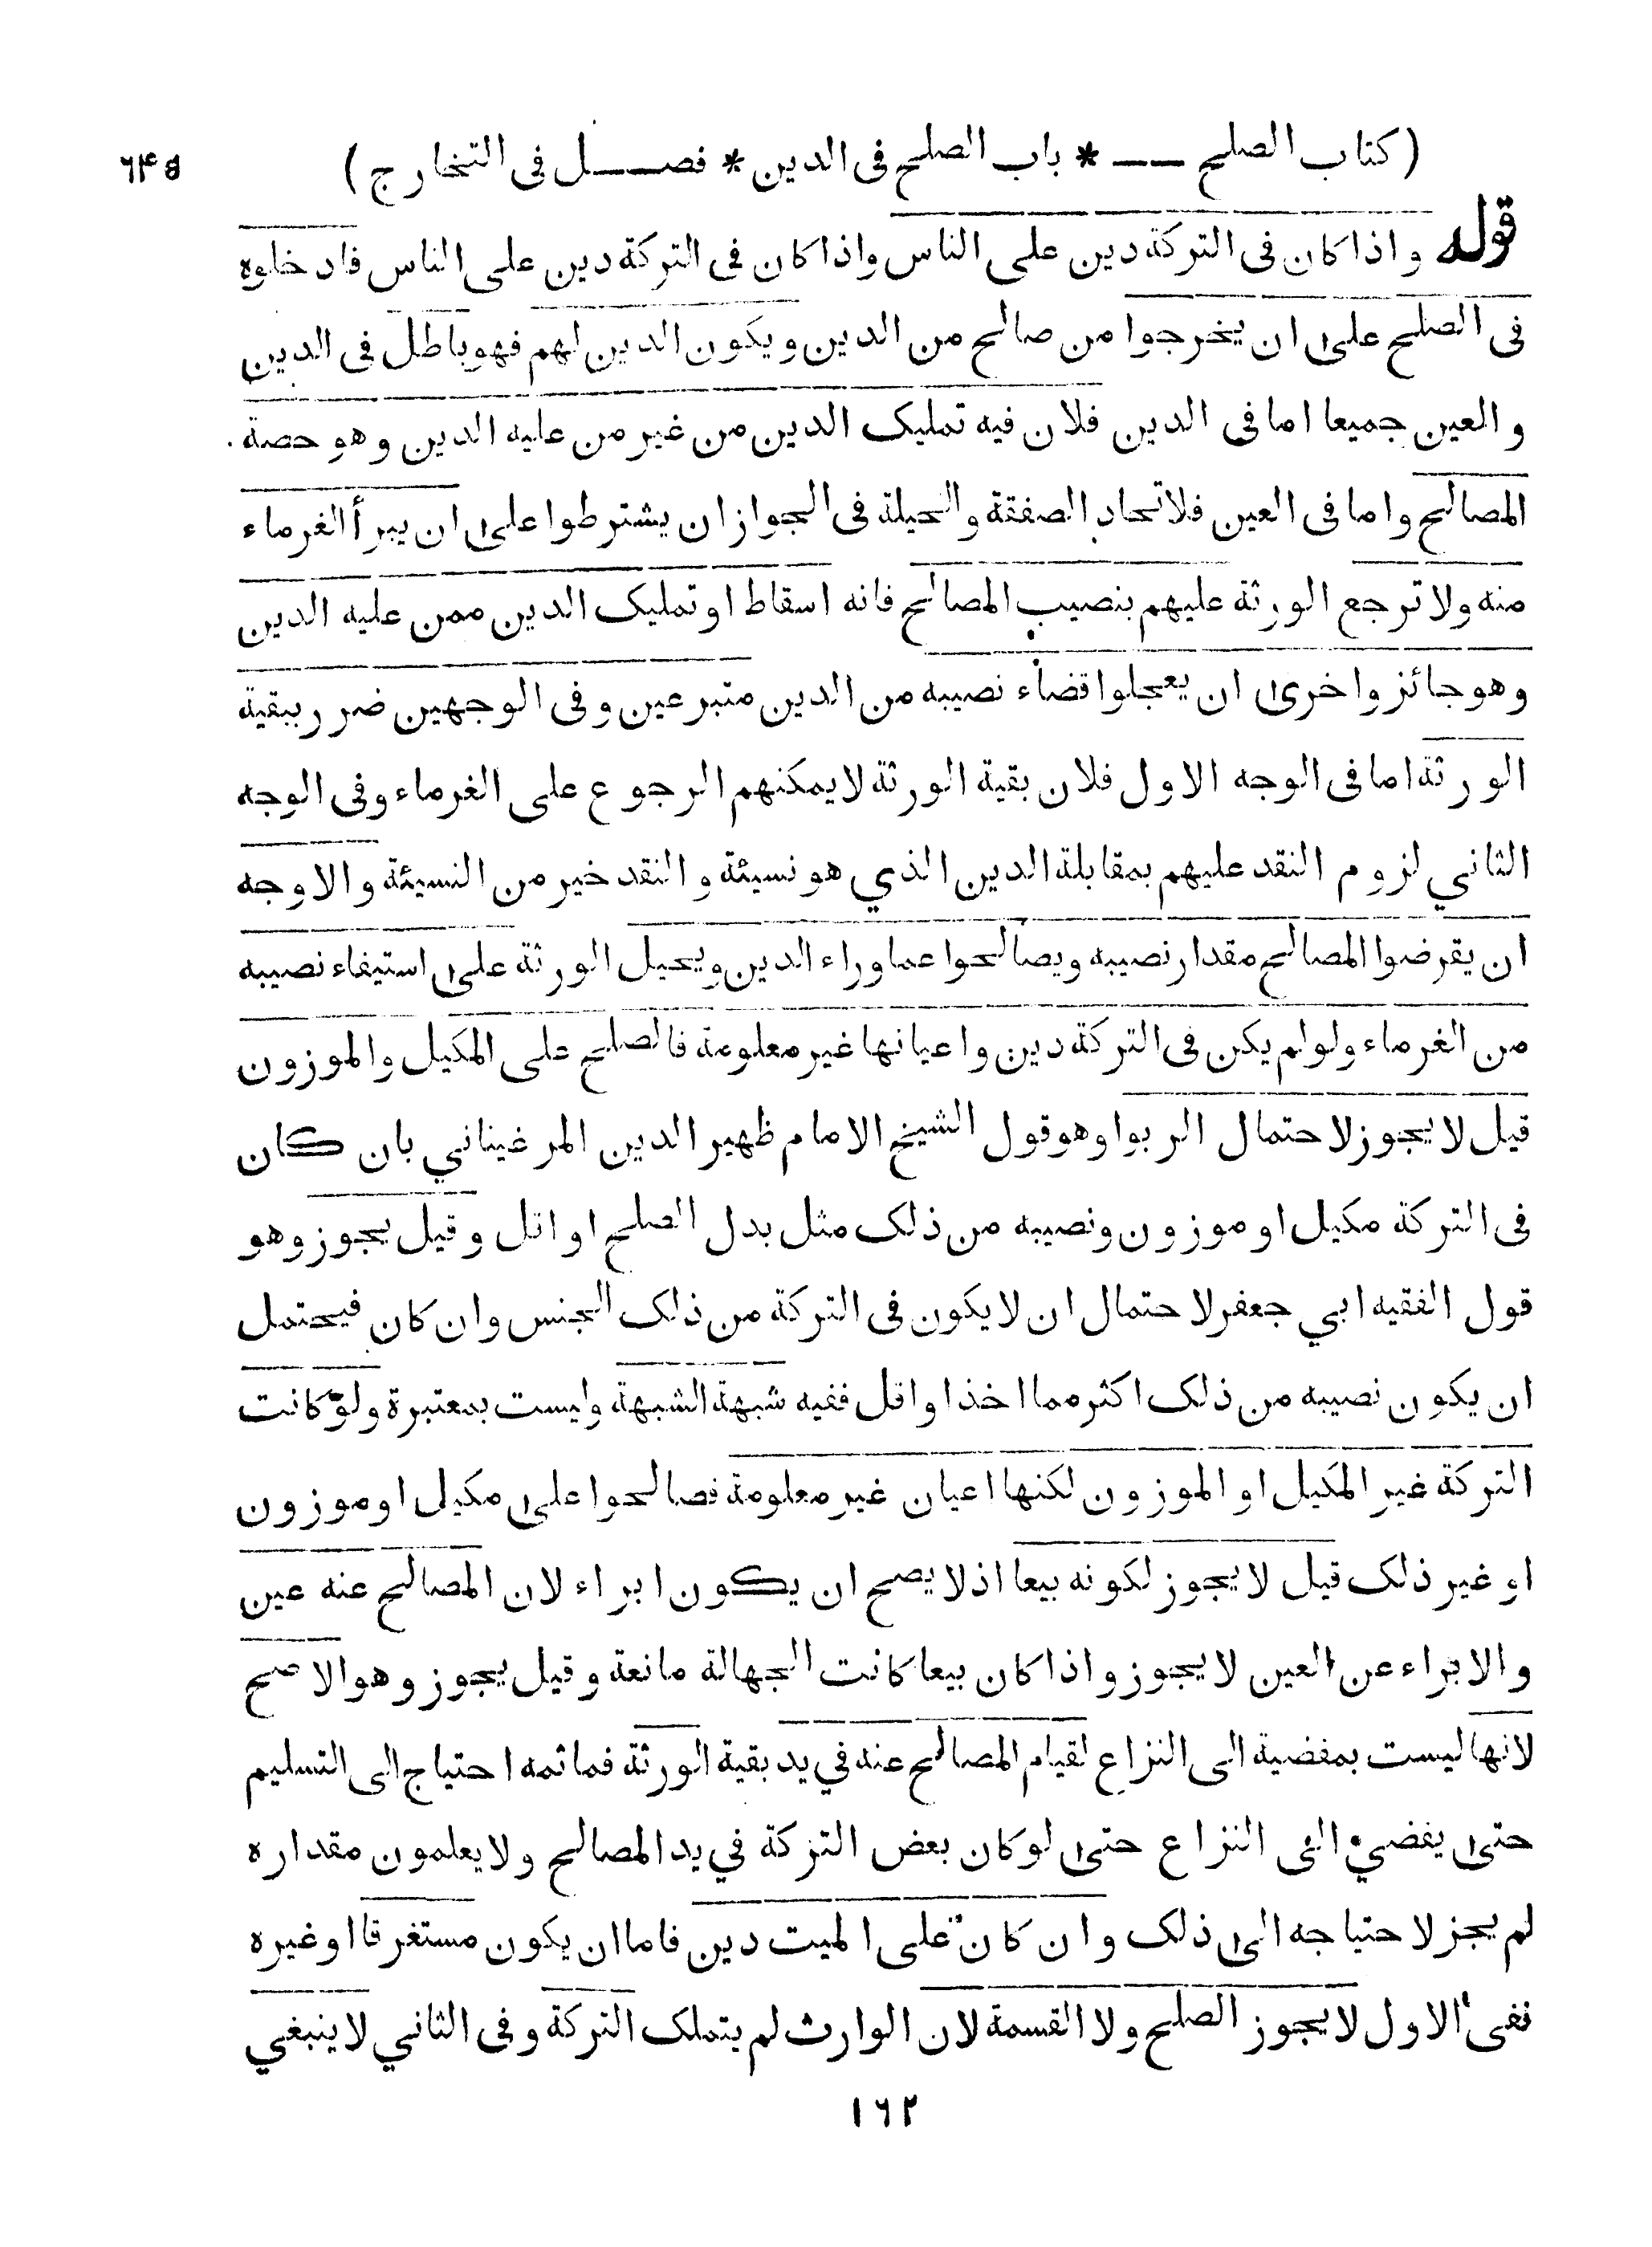 ( كتاب الصلح —— * باب الصلح فى الدين * فصـــل فى التخارج ) ٦٤٥
قوله واذا كان فى التركة دين على الناس واذا كان فى التركة دين على الناس فادخلوه
فى الصلح على ان يخرجوا من صالح من الدين ويكون الدين لهم فهو باطل فى الدين
والعين جميعا اما فى الدين فلان فيه تمليك الدين من غير من عليه الدين وهو حصة
المصالح واما فى العين فلاتحاد الصفقة والحيلة فى الجواز ان يشترطوا على ان يبرأ الغرماء
منه ولا ترجع الورثة عليهم بنصيب المصالح فانه اسقاط او تمليك الدين ممن عليه الدين
وهو جائز واخرى ان يعجلوا قضاء نصيبه من الدين متبرعين وفى الوجهين ضرر ببقية
الورثة اما فى الوجه الاول فلان بقية الورثة لا يمكنهم الرجوع على الغرماء وفى الوجه
الثاني لزوم النقد عليهم بمقابلة الدين الذي هو نسيئة والنقد خير من النسيئة والاوجه
ان يقرضوا المصالح مقدار نصيبه ويصالحوا عما وراء الدين ويحيل الورثة على استيفاء نصيبه
من الغرماء ولو لم يكن فى التركة دين واعيانها غير معلومة فالصلح على المكيل والموزون
قيل لا يجوز لاحتمال الربوا وهو قول الشيخ الامام ظهير الدين المرغيناني بان كان
فى التركة مكيل او موزون ونصيبه من ذلك مثل بدل الصلح او اقل وقيل يجوز وهو
قول الفقيه ابي جعفر لاحتمال ان لا يكون فى التركة من ذلك الجنس وان كان فيحتمل
ان يكون نصيبه من ذلك اكثر مما اخذ او اقل ففيه شبهة الشبهة وليست بمعتبرة ولو كانت
التركة غير المكيل او الموزون لكنها اعيان غير معلومة فصالحوا على مكيل او موزون
او غير ذلك قيل لا يجوز لكونه بيعا اذ لا يصح ان يكون ابراء لان المصالح عنه عين
والابراء عن العين لا يجوز واذا كان بيعا كانت الجهالة مانعة وقيل يجوز وهو الاصح
لانها ليست بمفضية الى النزاع لقيام المصالح عنه في يد بقية الورثة فماثمه احتياج الى التسليم
حتى يفضي الى النزاع حتى لو كان بعض التركة في يد المصالح ولا يعلمون مقداره
لم يجز لاحتياجه الى ذلك وان كان على الميت دين فاما ان يكون مستغرقا او غيره
ففى الاول لا يجوز الصلح ولا القسمة لان الوارث لم يتملك التركة وفى الثاني لا ينبغي
١٦٢